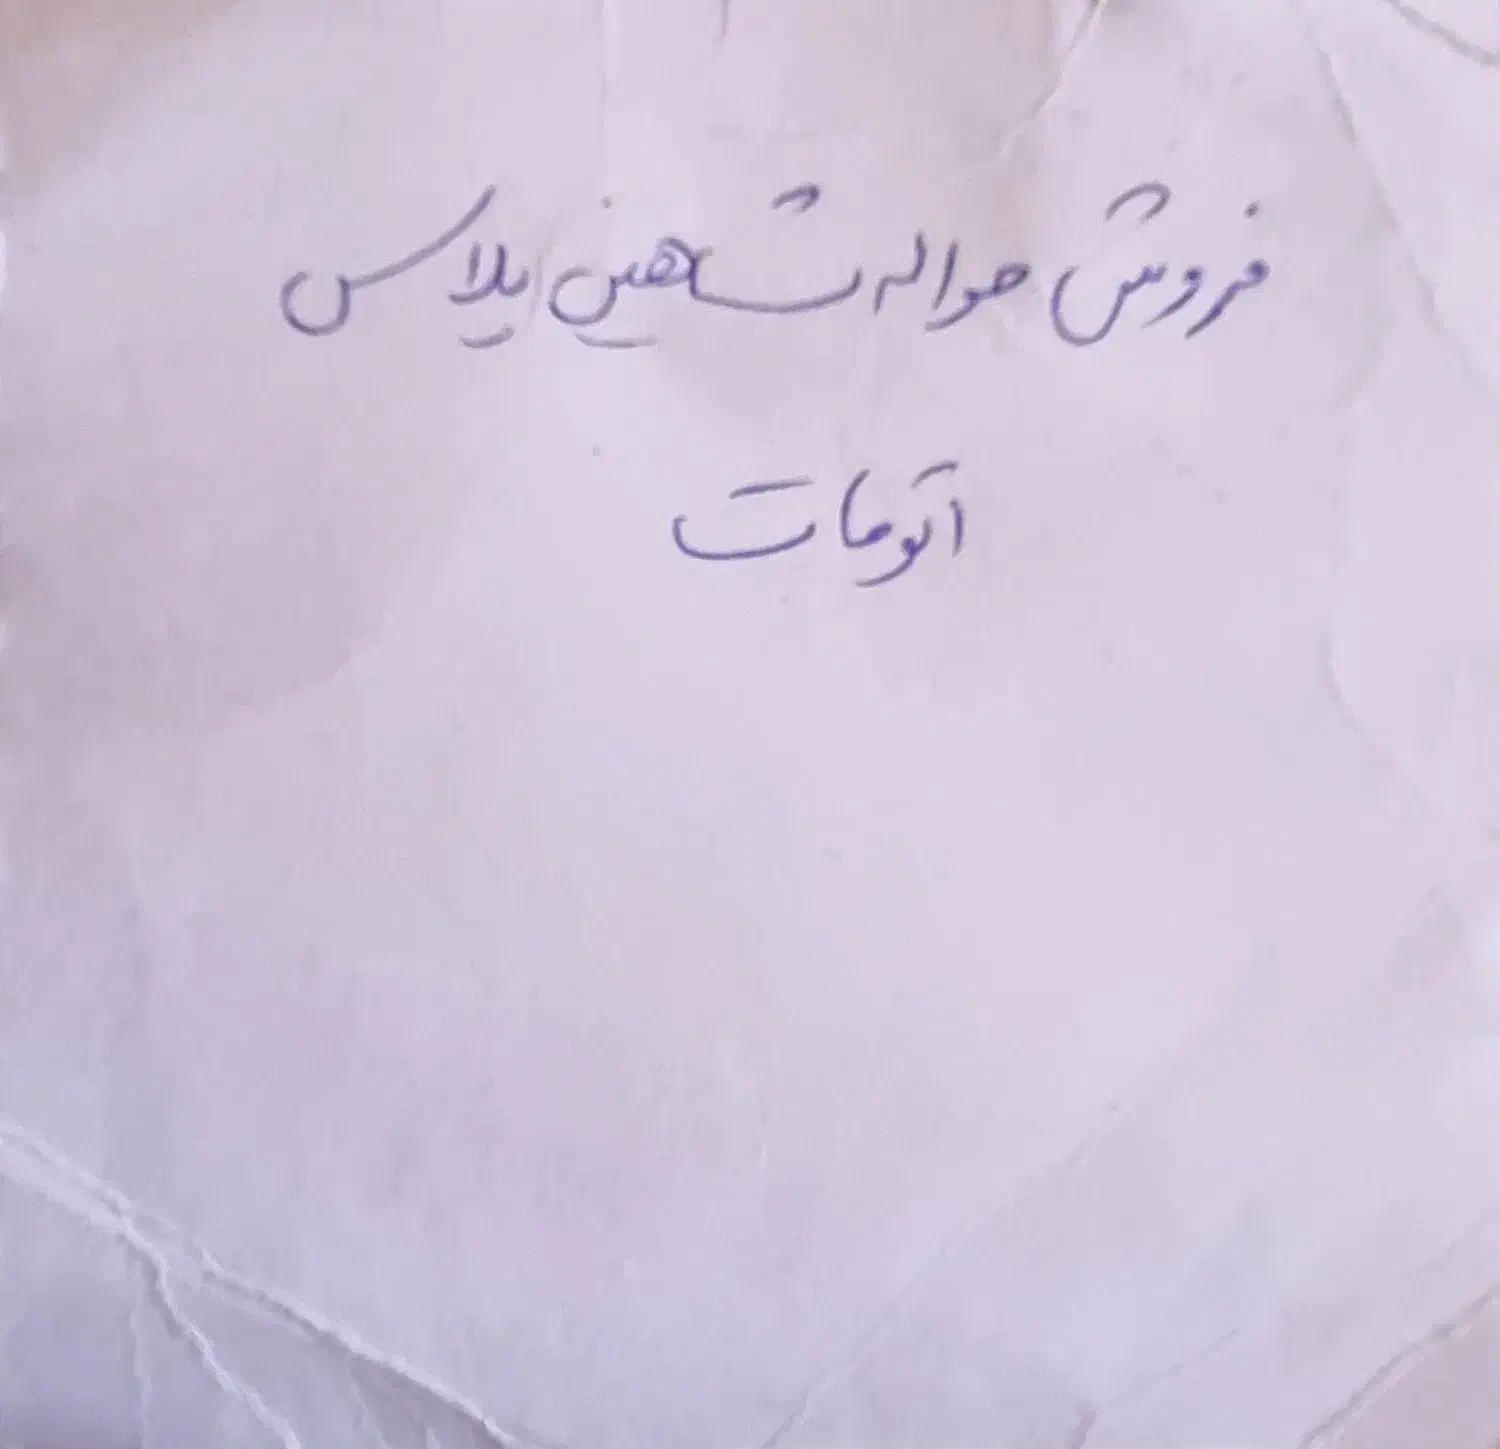 فروش حواله شاهین پلاس
اتومات